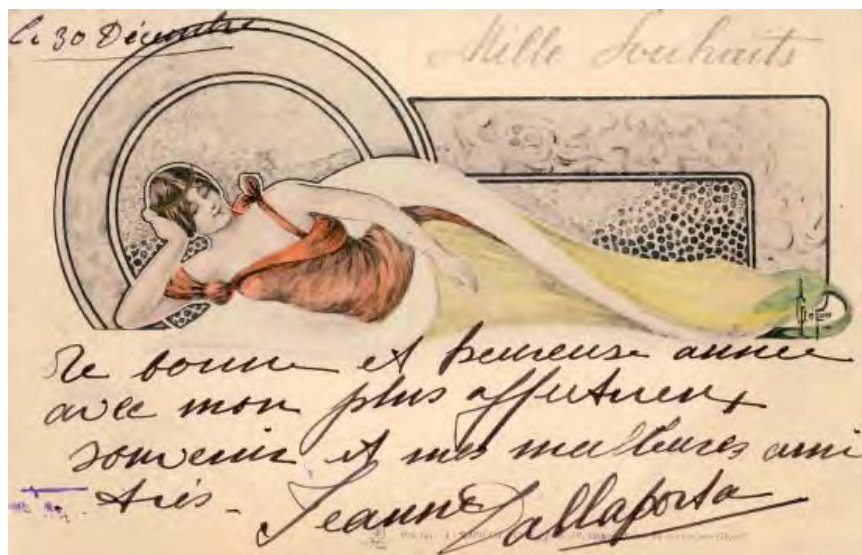 Le 30 Décembre
Mille Souhaits
de bonne et heureuse année
avec mon plus affectueux
souvenir et mes meilleures ami
tiés.
Jeanne Dallaporta